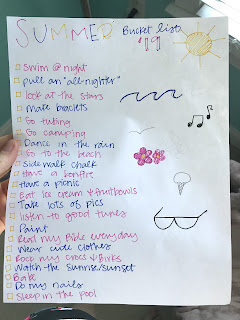 SUMMER Bucket list
'19
Swim @ night
pull an "all-nighter"
look at the stars
Make braclets
Go tubing
Go camping
Dance in the rain
Go to the beach
Side walk chalk
Have a bonfire
Have a picnic
Eat ice cream & fruit bowls
Take lots of pics
listen to good tunes
Paint
Read my Bible everyday
Wear cute clothes
Rock my crocs & Birks
Watch the sunrise/sunset
Bake
Do my nails
Sleep in the pool